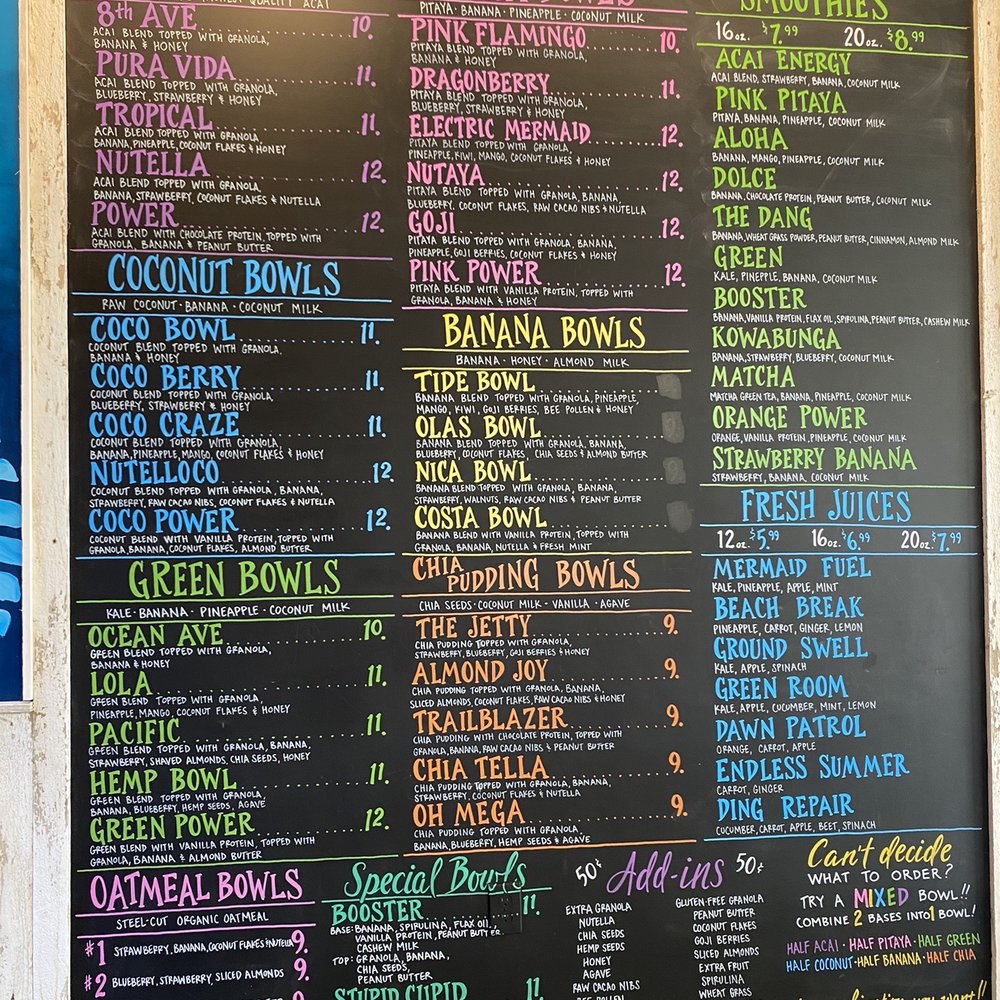 8th AVE 10.
ACAI BLEND TOPPED WITH GRANOLA,
BANANA & HONEY
PURA VIDA 11.
ACAI BLEND TOPPED WITH GRANOLA,
BLUEBERRY, STRAWBERRY & HONEY
TROPICAL 11.
ACAI BLEND TOPPED WITH GRANOLA,
BANANA, PINEAPPLE, COCONUT FLAKES & HONEY
NUTELLA 12.
ACAI BLEND TOPPED WITH GRANOLA,
BANANA, STRAWBERRY, COCONUT FLAKES & NUTELLA
POWER 12.
ACAI BLEND WITH CHOCOLATE PROTEIN, TOPPED WITH
GRANOLA, BANANA & PEANUT BUTTER
COCONUT BOWLS
RAW COCONUT · BANANA · COCONUT MILK
COCO BOWL 11.
COCONUT BLEND TOPPED WITH GRANOLA,
BANANA & HONEY
COCO BERRY 11.
COCONUT BLEND TOPPED WITH GRANOLA,
BLUEBERRY, STRAWBERRY & HONEY
COCO CRAZE 11.
COCONUT BLEND TOPPED WITH GRANOLA,
BANANA, PINEAPPLE, MANGO, COCONUT FLAKES & HONEY
NUTELLOCO 12.
COCONUT BLEND TOPPED WITH GRANOLA, BANANA,
STRAWBERRY, RAW CACAO NIBS, COCONUT FLAKES & NUTELLA
COCO POWER 12.
COCONUT BLEND WITH VANILLA PROTEIN, TOPPED WITH
GRANOLA, BANANA, COCONUT FLAKES, ALMOND BUTTER
GREEN BOWLS
KALE · BANANA · PINEAPPLE · COCONUT MILK
OCEAN AVE 10.
GREEN BLEND TOPPED WITH GRANOLA,
BANANA & HONEY
LOLA 11.
GREEN BLEND TOPPED WITH GRANOLA,
PINEAPPLE, MANGO, COCONUT FLAKES & HONEY
PACIFIC 11.
GREEN BLEND TOPPED WITH GRANOLA, BANANA,
STRAWBERRY, SHAVED ALMONDS, CHIA SEEDS, HONEY
HEMP BOWL 11.
GREEN BLEND TOPPED WITH GRANOLA,
BANANA, BLUEBERRY, HEMP SEEDS, AGAVE
GREEN POWER 12.
GREEN BLEND WITH VANILLA PROTEIN, TOPPED WITH
GRANOLA, BANANA & ALMOND BUTTER
OATMEAL BOWLS
STEEL-CUT ORGANIC OATMEAL
#1 STRAWBERRY, BANANA, COCONUT FLAKES & NUTELLA 9.
#2 BLUEBERRY, STRAWBERRY, SLICED ALMONDS 9.
PITAYA · BANANA · PINEAPPLE · COCONUT MILK
PINK FLAMINGO 10.
PITAYA BLEND TOPPED WITH GRANOLA,
BANANA & HONEY
DRAGONBERRY 11.
PITAYA BLEND TOPPED WITH GRANOLA,
BLUEBERRY, STRAWBERRY & HONEY
ELECTRIC MERMAID 12.
PITAYA BLEND TOPPED WITH GRANOLA,
PINEAPPLE, KIWI, MANGO, COCONUT FLAKES & HONEY
NUTAYA 12.
PITAYA BLEND TOPPED WITH GRANOLA, BANANA,
BLUEBERRY, COCONUT FLAKES, RAW CACAO NIBS & NUTELLA
GOJI 12.
PITAYA BLEND TOPPED WITH GRANOLA, BANANA,
PINEAPPLE, GOJI BERRIES, COCONUT FLAKES & HONEY
PINK POWER 12.
PITAYA BLEND WITH VANILLA PROTEIN, TOPPED WITH
GRANOLA, BANANA & HONEY
BANANA BOWLS
BANANA · HONEY · ALMOND MILK
TIDE BOWL
BANANA BLEND TOPPED WITH GRANOLA, PINEAPPLE,
MANGO, KIWI, GOJI BERRIES, BEE POLLEN & HONEY
OLAS BOWL
BANANA BLEND TOPPED WITH GRANOLA, BANANA,
BLUEBERRY, COCONUT FLAKES, CHIA SEEDS & ALMOND BUTTER
NICA BOWL
BANANA BLEND TOPPED WITH GRANOLA, BANANA
STRAWBERRY, WALNUTS, RAW CACAO NIBS & PEANUT BUTTER
COSTA BOWL
BANANA BLEND WITH VANILLA PROTEIN, TOPPED WITH
GRANOLA, BANANA, NUTELLA & FRESH MINT
CHIA PUDDING BOWLS
CHIA SEEDS · COCONUT MILK · VANILLA · AGAVE
THE JETTY 9.
CHIA PUDDING TOPPED WITH GRANOLA,
STRAWBERRY, BLUEBERRY, GOJI BERRIES & HONEY
ALMOND JOY 9.
CHIA PUDDING TOPPED WITH GRANOLA, BANANA,
SLICED ALMONDS, COCONUT FLAKES, RAW CACAO NIBS & HONEY
TRAILBLAZER 9.
CHIA PUDDING WITH CHOCOLATE PROTEIN, TOPPED WITH
GRANOLA, BANANA, RAW CACAO NIBS & PEANUT BUTTER
CHIA TELLA 9.
CHIA PUDDING TOPPED WITH GRANOLA, BANANA,
STRAWBERRY, COCONUT FLAKES & NUTELLA
OH MEGA 9.
CHIA PUDDING TOPPED WITH GRANOLA,
BANANA, BLUEBERRY, HEMP SEEDS & AGAVE
Special Bowls
BOOSTER 11.
BASE: BANANA, SPIRULINA, FLAX OIL,
VANILLA PROTEIN, PEANUT BUTTER
CASHEW MILK
TOP: GRANOLA, BANANA,
CHIA SEEDS,
PEANUT BUTTER
STUPID CUPID 11.
50¢ Add-ins 50¢
EXTRA GRANOLA
NUTELLA
CHIA SEEDS
HEMP SEEDS
HONEY
AGAVE
RAW CACAO NIBS
BEE POLLEN
GLUTEN-FREE GRANOLA
PEANUT BUTTER
COCONUT FLAKES
GOJI BERRIES
SLICED ALMONDS
EXTRA FRUIT
SPIRULINA
WHEAT GRASS
SMOOTHIES
16oz. $7.99 20oz. $8.99
ACAI ENERGY
ACAI BLEND, STRAWBERRY, BANANA, COCONUT MILK
PINK PITAYA
PITAYA, BANANA, PINEAPPLE, COCONUT MILK
ALOHA
BANANA, MANGO, PINEAPPLE, COCONUT MILK
DOLCE
BANANA, CHOCOLATE PROTEIN, PEANUT BUTTER, COCONUT MILK
THE DANG
BANANA, WHEAT GRASS POWDER, PEANUT BUTTER, CINNAMON, ALMOND MILK
GREEN
KALE, PINEPPLE, BANANA, COCONUT MILK
BOOSTER
BANANA, VANILLA PROTEIN, FLAX OIL, SPIRULINA, PEANUT BUTTER, CASHEW MILK
KOWABUNGA
BANANA, STRAWBERRY, BLUEBERRY, COCONUT MILK
MATCHA
MATCHA GREEN TEA, BANANA, PINEAPPLE, COCONUT MILK
ORANGE POWER
ORANGE, VANILLA PROTEIN, PINEAPPLE, COCONUT MILK
STRAWBERRY BANANA
STRAWBERRY, BANANA, COCONUT MILK
FRESH JUICES
12oz. $5.99 16oz. $6.99 20oz. $7.99
MERMAID FUEL
KALE, PINEAPPLE, APPLE, MINT
BEACH BREAK
PINEAPPLE, CARROT, GINGER, LEMON
GROUND SWELL
KALE, APPLE, SPINACH
GREEN ROOM
KALE, APPLE, CUCUMBER, MINT, LEMON
DAWN PATROL
ORANGE, CARROT, APPLE
ENDLESS SUMMER
CARROT, GINGER
DING REPAIR
CUCUMBER, CARROT, APPLE, BEET, SPINACH
Can't decide
WHAT TO ORDER?
TRY A MIXED BOWL!!
COMBINE 2 BASES INTO 1 BOWL!
HALF ACAI · HALF PITAYA · HALF GREEN
HALF COCONUT · HALF BANANA · HALF CHIA